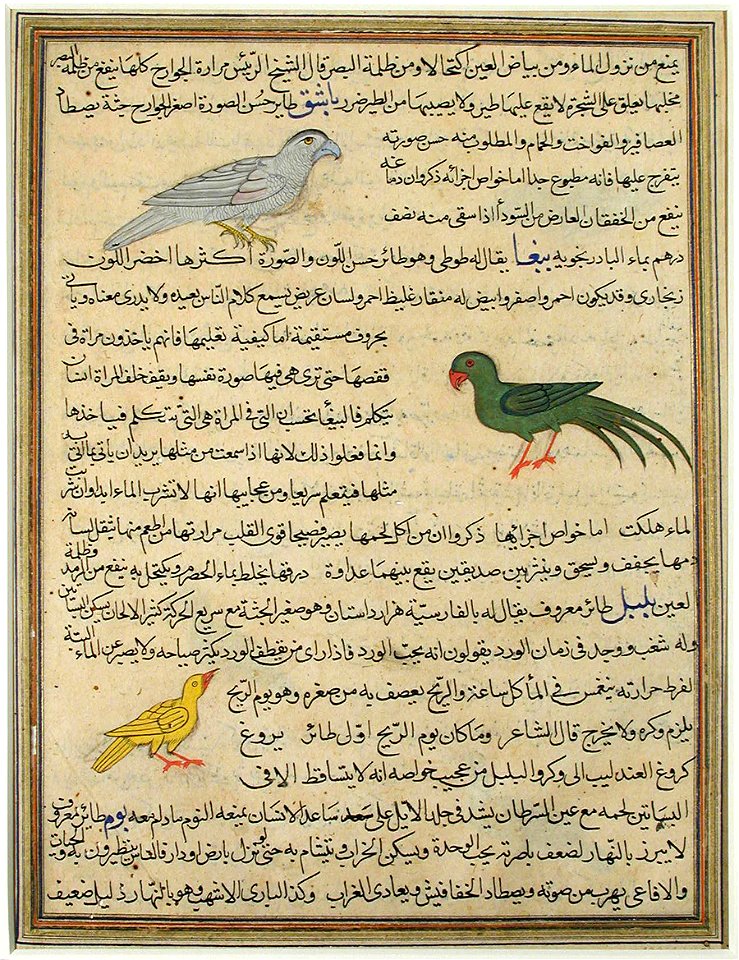 يمنع من نزول الماء ومن بياض العين اكتحالا ومن ظلمة البصر قال الشيخ الرئيس مرارة الجوارح كلها ينفع من ظلمة البصر
مخلبها يعلق على الشجرة لا يقع عليها طير ولا يصيبها من الطير ضرر باشق طاير حسن الصورة اصغر الجوارح جثة يصطاد
العصافير والفواخت والحمام والمطلوب منه حسن صورته
يتفرج عليها فانه مطبوع جدا اما خواص اجزائه ذكروا ان دماغه
ينفع من الخفقان العارض من السودا اذا سقى منه نصف
درهم بماء البادرنجويه ببغا يقال له طوطى وهو طائر حسن اللون والصورة اكثرها اخضر اللون
زنجارى وقد يكون احمر واصفر وابيض له منقار غليظ احمر ولسان عريض يسمع كلام الناس يعيده ولا يدرى معناه وياتى
بحروف مستقيمة اما كيفية تعليمها فانهم ياخذون مراة فى
قفصها حتى ترى هى فيها صورة نفسها ويقف خلف المراة انسان
يتكلم فالببغا تحسب ان التى فى المراة هى التى تتكلم فياخذها
وانما فعلوا ذلك لانها اذا سمعت من مثلها يريد ان ياتى بما ياتى به
مثلها فيتعلم سريعا ومن عجايبها انها لا تشرب الماء ابدا وان شربت
الماء هلكت اما خواص اجزايها ذكروا ان من اكل لحمها يصير فصيحا قوى القلب مرارتها من اطعم منها ثقل لسانه
دمها يجفف ويسحق وينثر بين صديقين يقع بينهما عداوة ذرقها يخلط بماء الحصرم ويكتحل به ينفع من الرمد وظلمة
العين بلبل طائر معروف يقال له بالفارسية هزار داستان وهو صغير الجثة مع سريع الحركة كثير الالحان يسكن البساتين
وله شغب ووجد فى زمان الورد يقولون انه يحب الورد فاذا راى من يقطف الورد يكثر صياحه ولا يصبر عن الماء البتة
لفرط حرارته ينغمس فى الماء كل ساعة والريح يعصف به من صغره وهو يوم الريح
يلزم وكره ولا يخرج قال الشاعر وما كان يوم الريح اول طائر يروغ
كروغ العندليب الى وكر والبلبل من عجيب خواصه انه لا يتسافط الا فى
البساتين لحمه مع عين السرطان يشد فى جلد الايل على ساعد الانسان يمنعه النوم ما دام معه بوم طائر معروف
لا يبرز بالنهار لضعف باصرته يحب الوحدة ويسكن الخراب ويتشام به حتى لو نزل بارض او دار فالناس يتطيرون به والحيات
والافاعى يهرب من صوته ويصطاد الخفافيش ويعادى الغراب وكذا البازى الاشهب وهو بالنهار ذليل ضعيف